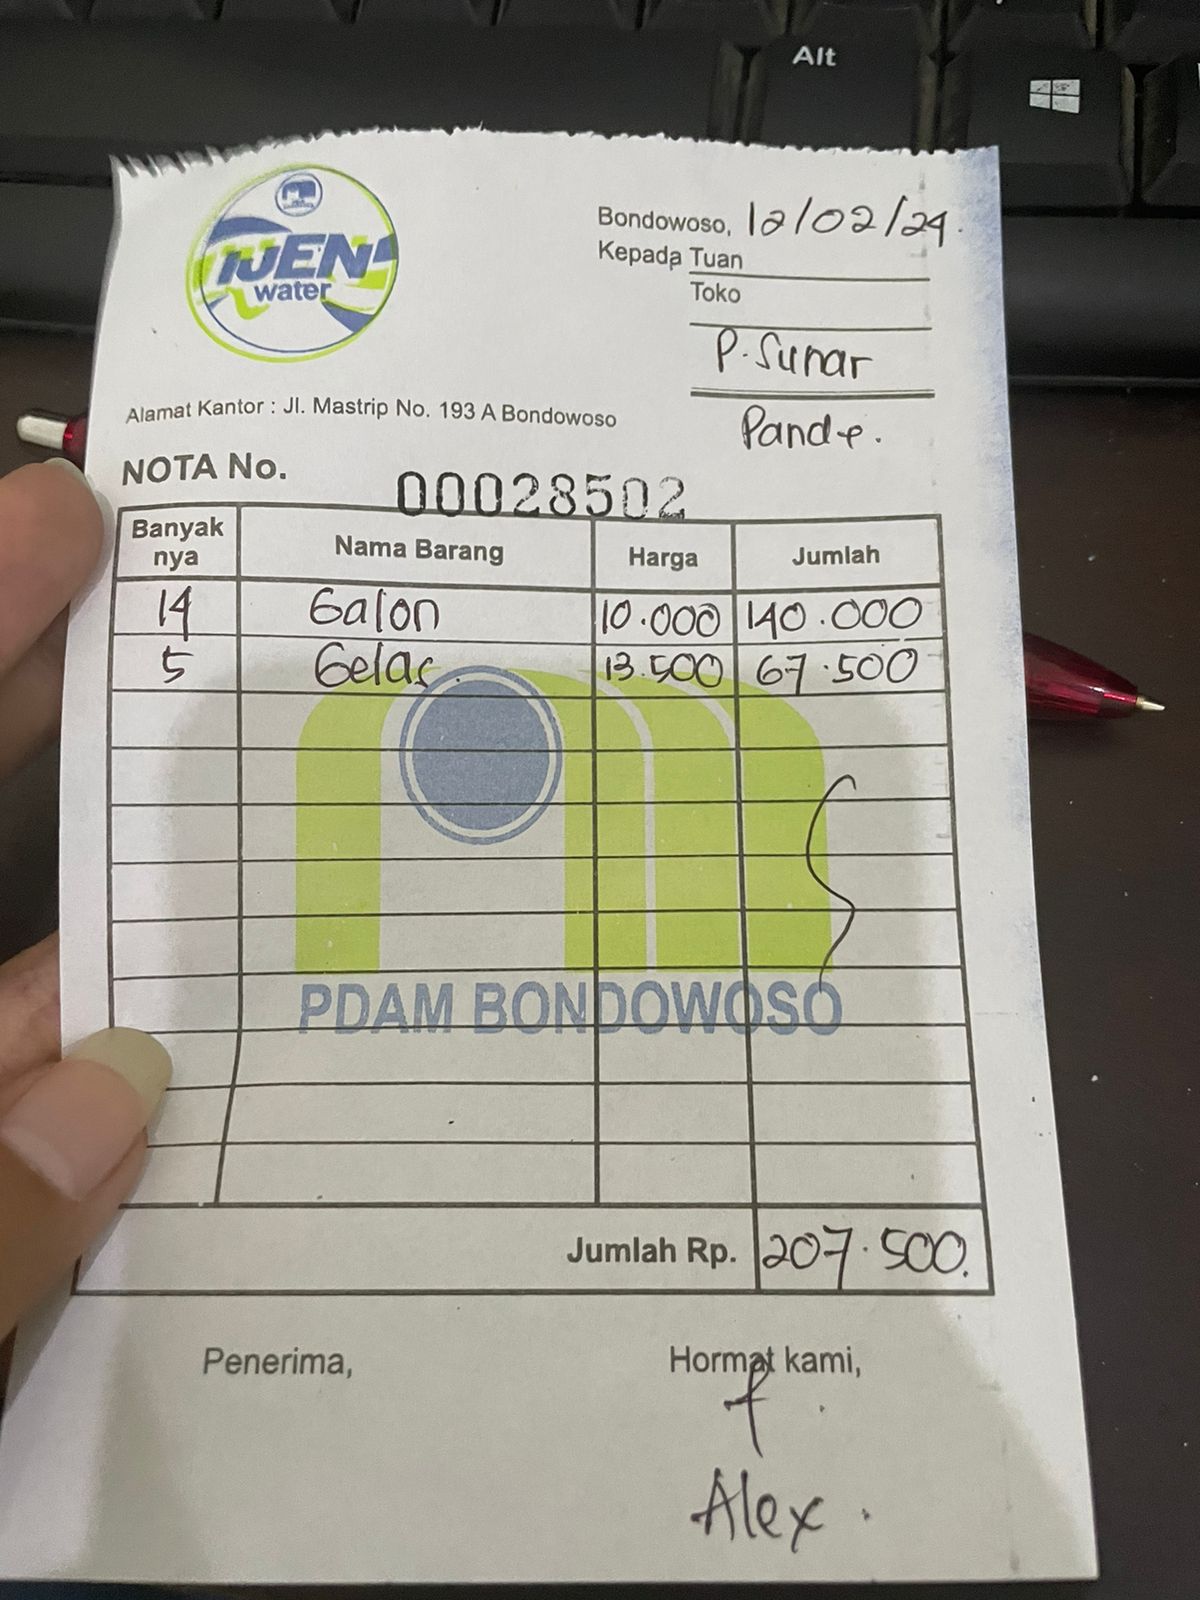 Alt
IJEN
water
Bondowoso, 12/02/24.
Kepada Tuan
Toko
P. Sunar
Pande.
Alamat Kantor : Jl. Mastrip No. 193 A Bondowoso
NOTA No. 00028502
Banyak nya Nama Barang Harga Jumlah
14 Galon 10.000 140.000
5 Gelas 13.500 67.500
PDAM BONDOWOSO
Jumlah Rp. 207.500.
Penerima, Hormat kami,
Alex.